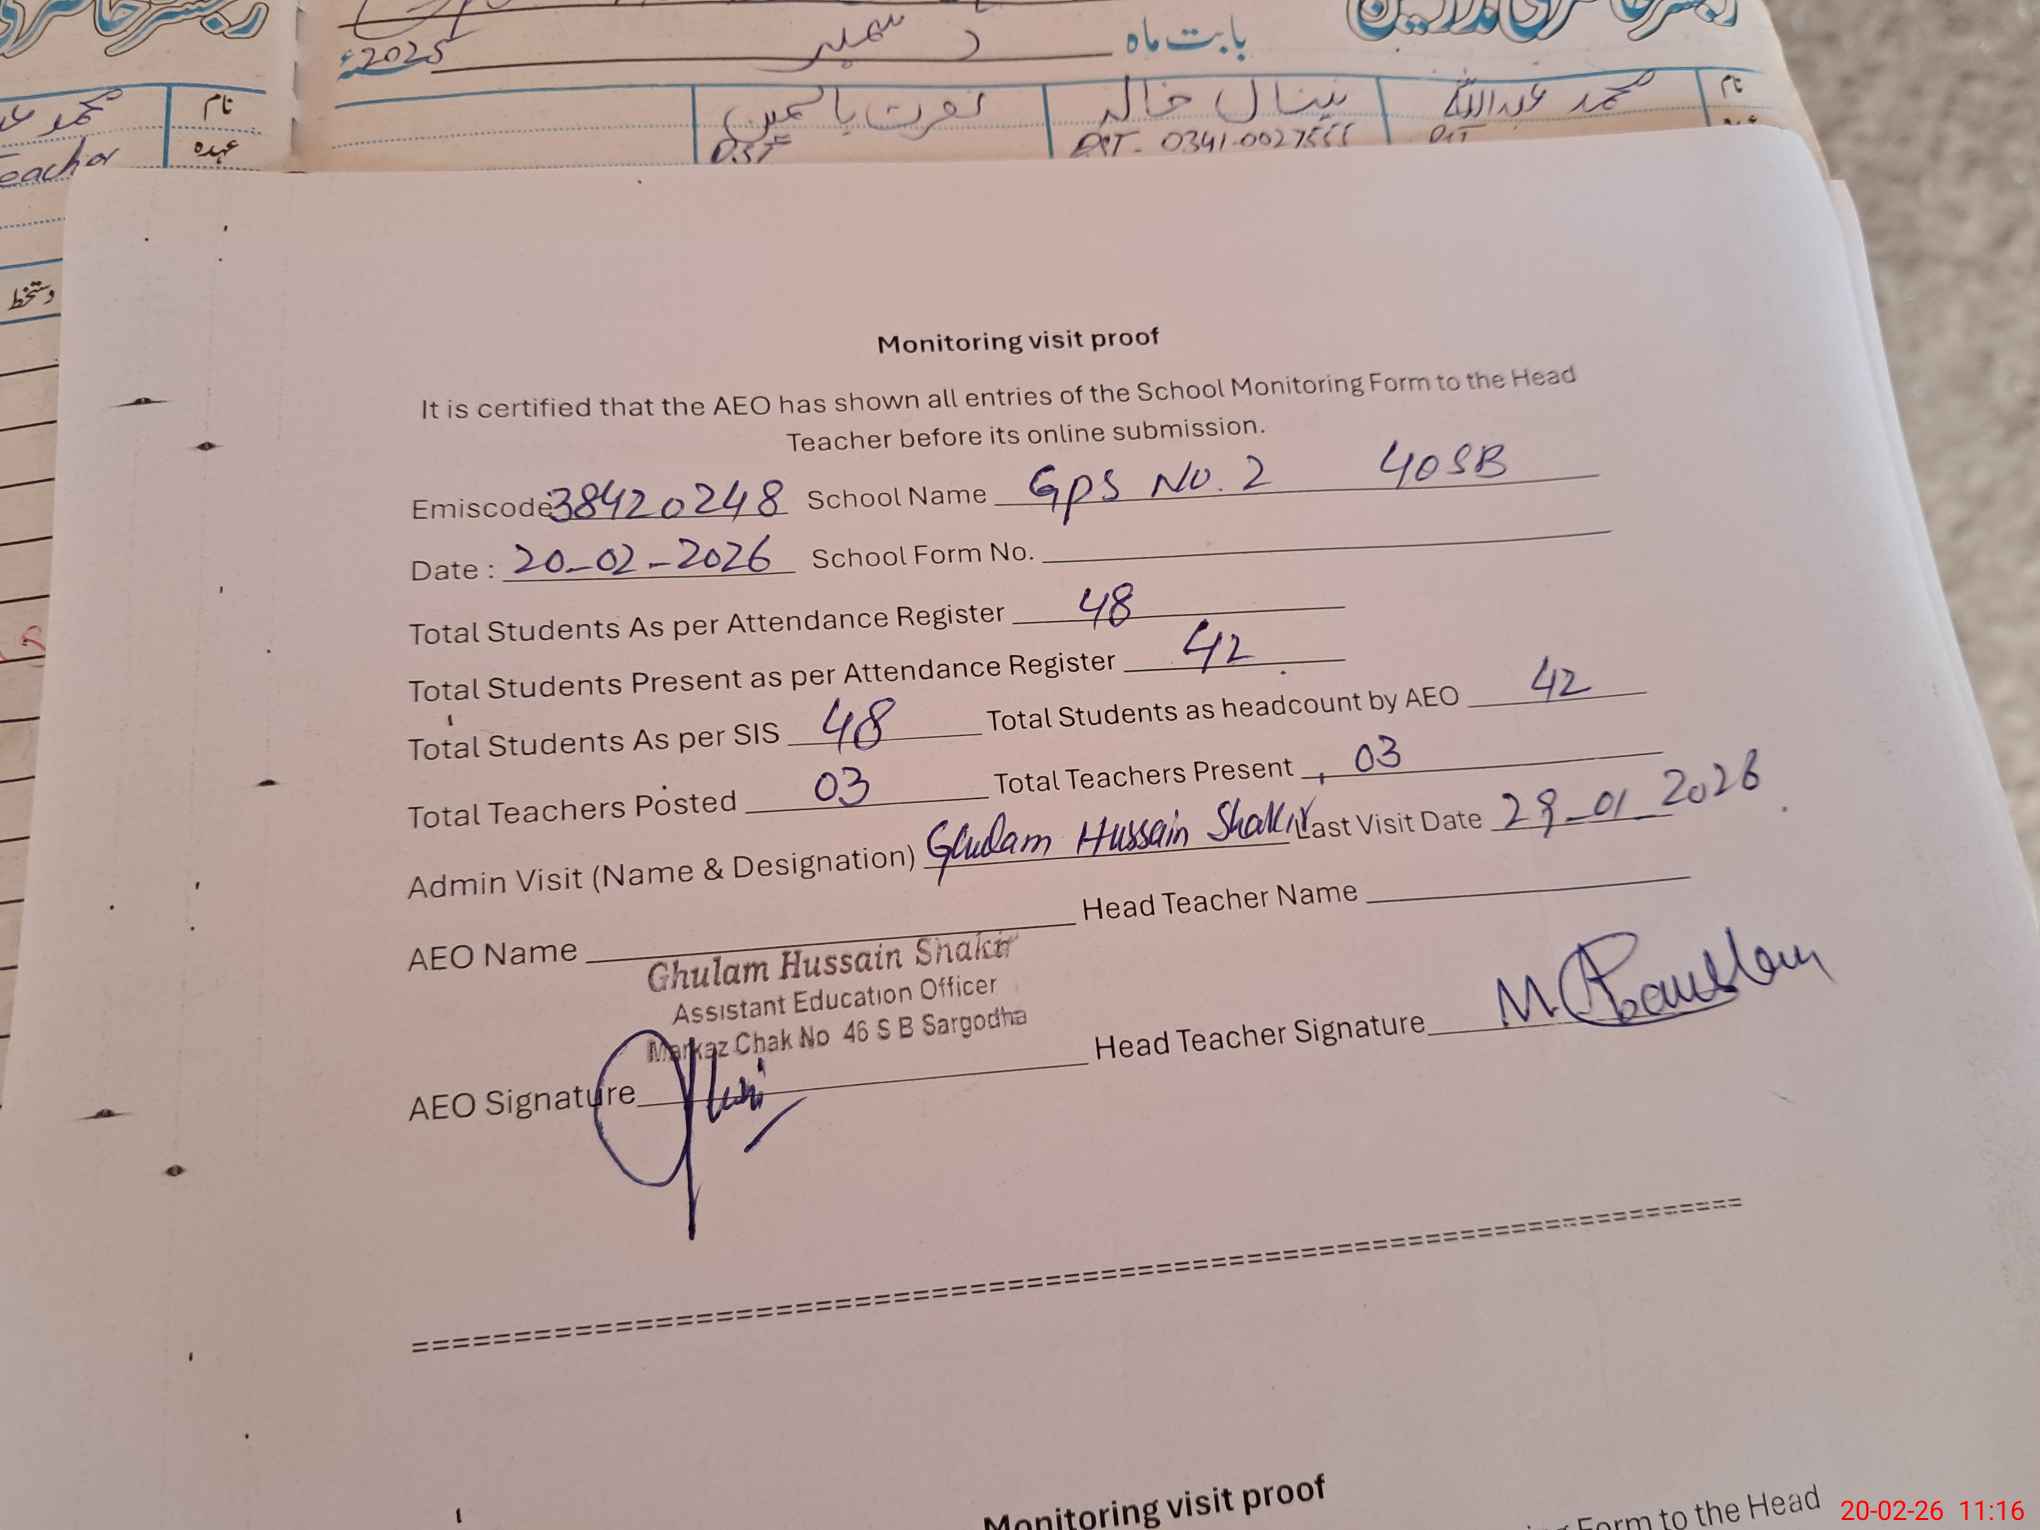 2025ء دسمبر بابت ماہ
نام محمد عبداللہ
خالد
نام
عہدہ
DST- 0341-0027555
DST
eacher
دستخط
Monitoring visit proof
It is certified that the AEO has shown all entries of the School Monitoring Form to the Head
Teacher before its online submission.
Emiscode 38420248 School Name GPS No. 2 40SB
Date : 20-02-2026 School Form No.
Total Students As per Attendance Register 48
Total Students Present as per Attendance Register 42
Total Students As per SIS 48 Total Students as headcount by AEO 42
Total Teachers Posted 03 Total Teachers Present 03
Admin Visit (Name & Designation) Ghulam Hussain Shakir Last Visit Date 29-01-2026
AEO Name Head Teacher Name
Ghulam Hussain Shakir
Assistant Education Officer
Markaz Chak No 46 S B Sargodha
AEO Signature Head Teacher Signature
==========
Monitoring visit proof
Form to the Head
20-02-26 11:16